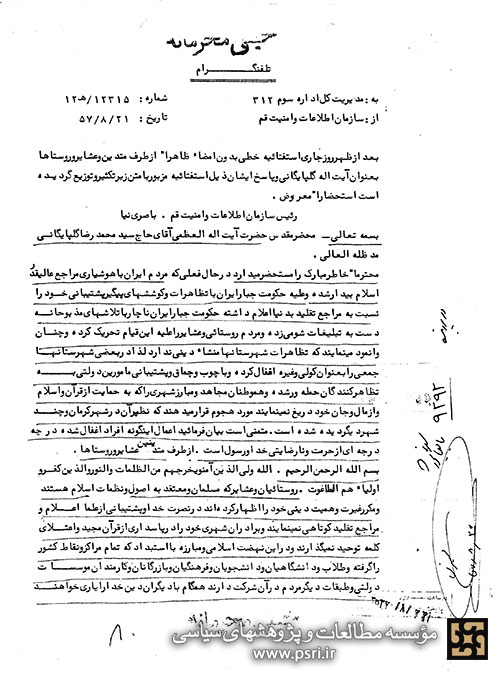 خیلی محرمانه
تلفنگرام
به : مدیریت کل اداره سوم ۳۱۲
شماره : ۱۲۳۱۵/هـ۱۲
از : سازمان اطلاعات و امنیت قم
تاریخ : ۵۷/۸/۲۱
بعد از ظهر روز جاری استفتائیه خطی بدون امضاء ظاهرا" از طرف متدینین و عشایر و روستاها
بعنوان آیت اله گلپایگانی و پاسخ ایشان ذیل استفتائیه مزبور با متن زیر تکثیر و توزیع گردیده
است استحضارا" معروض .
رئیس سازمان اطلاعات و امنیت قم . باصری نیا
بسمه تعالی - محضر مقدس حضرت آیت اله العظمی آقای حاج سید محمد رضا گلپایگانی
مد ظله العالی .
محترما" خاطر مبارک را مستحضر میدارد در حال فعلی که مردم ایران با هوشیاری مراجع عالیقدر
اسلام بیدار شده و علیه حکومت جبار ایران با تظاهرات و کوششهای پیگیر پشتیبانی خود را
نسبت به مراجع تقلید بدنیا اعلام داشته حکومت جبار ایران ناچار با تلاشهای مذبوحانه
دست به تبلیغات شومی زده و مردم روستائی و عشایر را علیه این قیام تحریک کرده و چنان
وانمود مینمایند که تظاهرات شهرستانها منشاء دینی ندارد لذا در بعضی شهرستانها
جمعی را بعنوان کولی و غیره اغفال کرده و با چوب و چماق و پشتیبانی مامورین دولتی به
تظاهرکنندگان حمله ور شده و هموطنان مجاهد و مبارز شهری را که به حمایت از قرآن و اسلام
و از مال و جان خود دریغ نمینمایند مورد هجوم قرار میدهند که نظیر آن در شهر کرمان و چند
شهر دیگر دیده شده است . متمنی است بیان فرمائید اعمال اینگونه افراد اغفال شده در چه
درجه ای از حرمت و نارضایتی خدا و رسول است . از طرف متدینین عشایر و روستاها .
بسم الله الرحمن الرحیم . الله ولی الذین آمنو یخرجهم من الظلمات الی النور والذین کفرو
اولیاء هم الطاغوت . روستائیان و عشایر که مسلمان و معتقد به اصول و نظامات اسلام هستند
و مکرر غیرت و همیت دینی خود را اظهار کرده اند در نصرت خدا و پشتیبانی از علما اعلام و
مراجع تقلید کوتاهی نمینمایند و برادران شهری خود را در پاسداری از قرآن مجید و اعتلای
کلمه توحید نمیگذارند و در این نهضت اسلامی و مبارزه با استبداد که تمام مراکز و نقاط کشور
را گرفته و طلاب و دانشگاهیان و دانشجویان و فرهنگیان و بازرگانان و کارمندان موسسات
دولتی و طبقات دیگر مردم در آن شرکت دارند همگام با دیگران دین خدا را یاری خواهند
۹۲۹۲
۸۰
مؤسسه مطالعات و پژوهشهای سیاسی
www.psri.ir